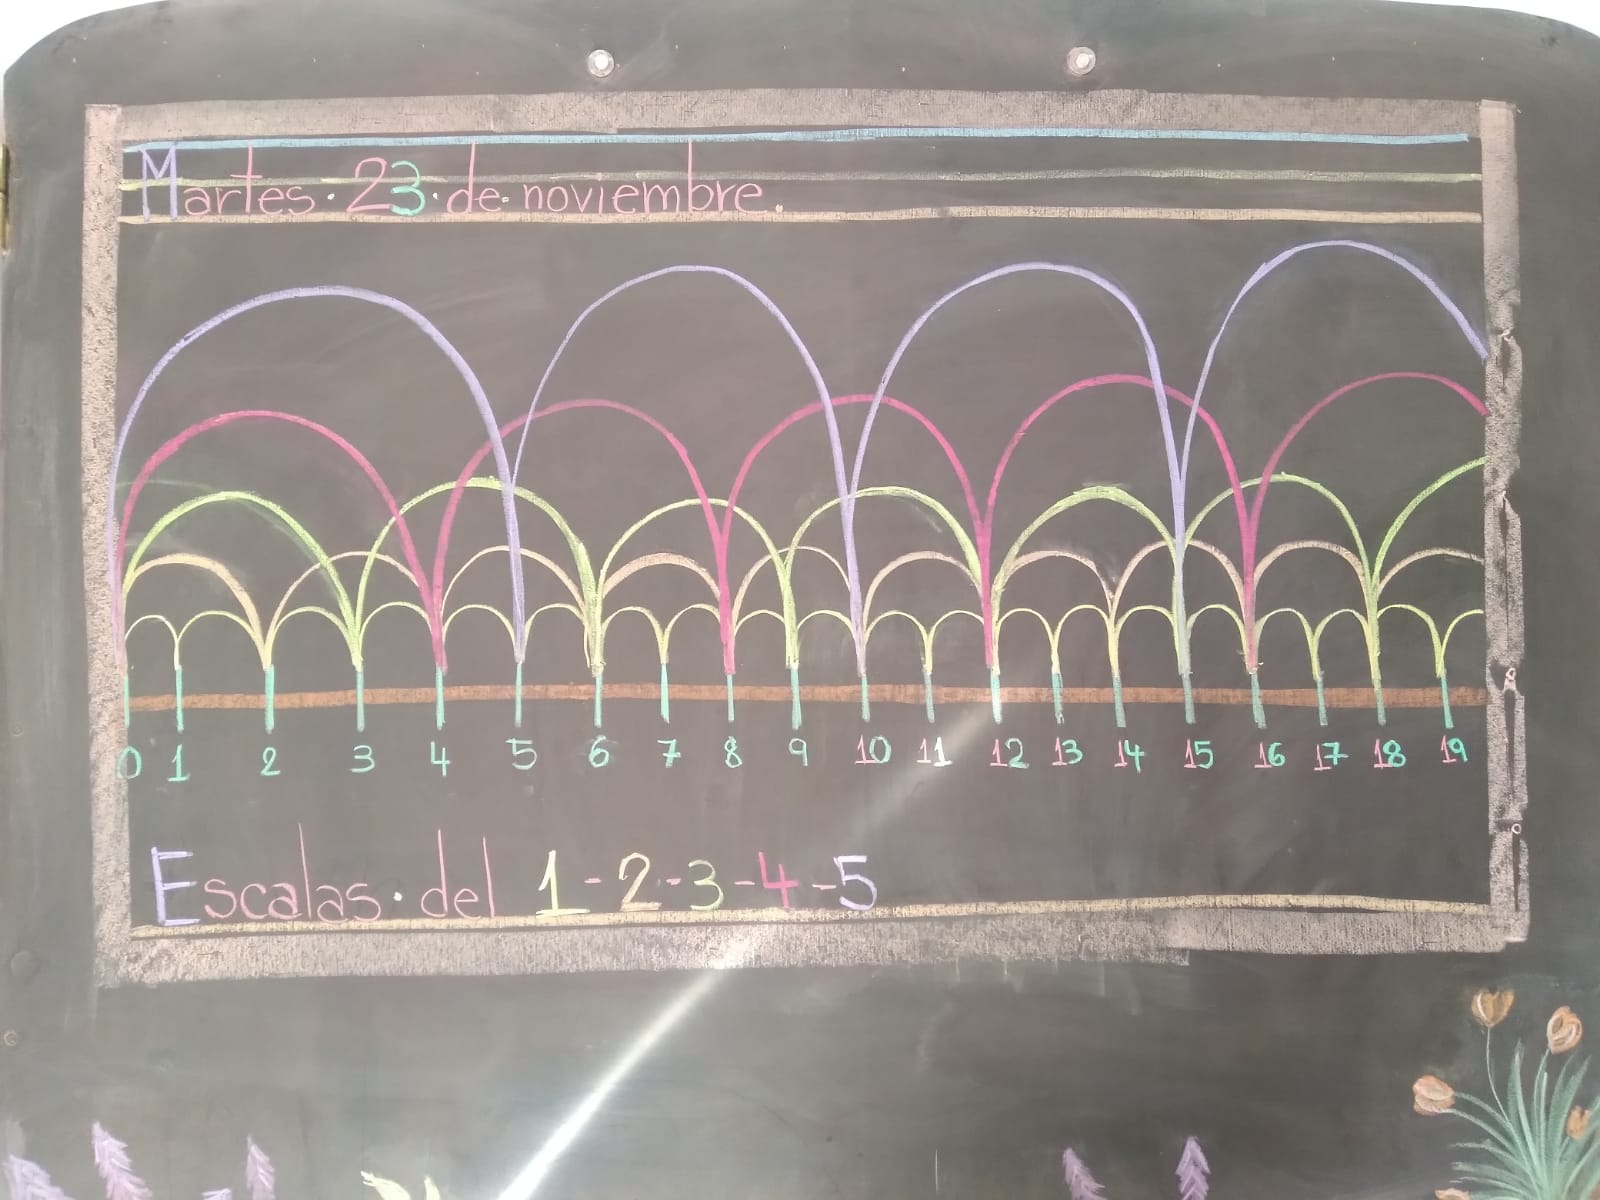 Martes · 23 · de · noviembre.
0 1 2 3 4 5 6 7 8 9 10 11 12 13 14 15 16 17 18 19
Escalas · del 1 - 2 - 3 - 4 - 5